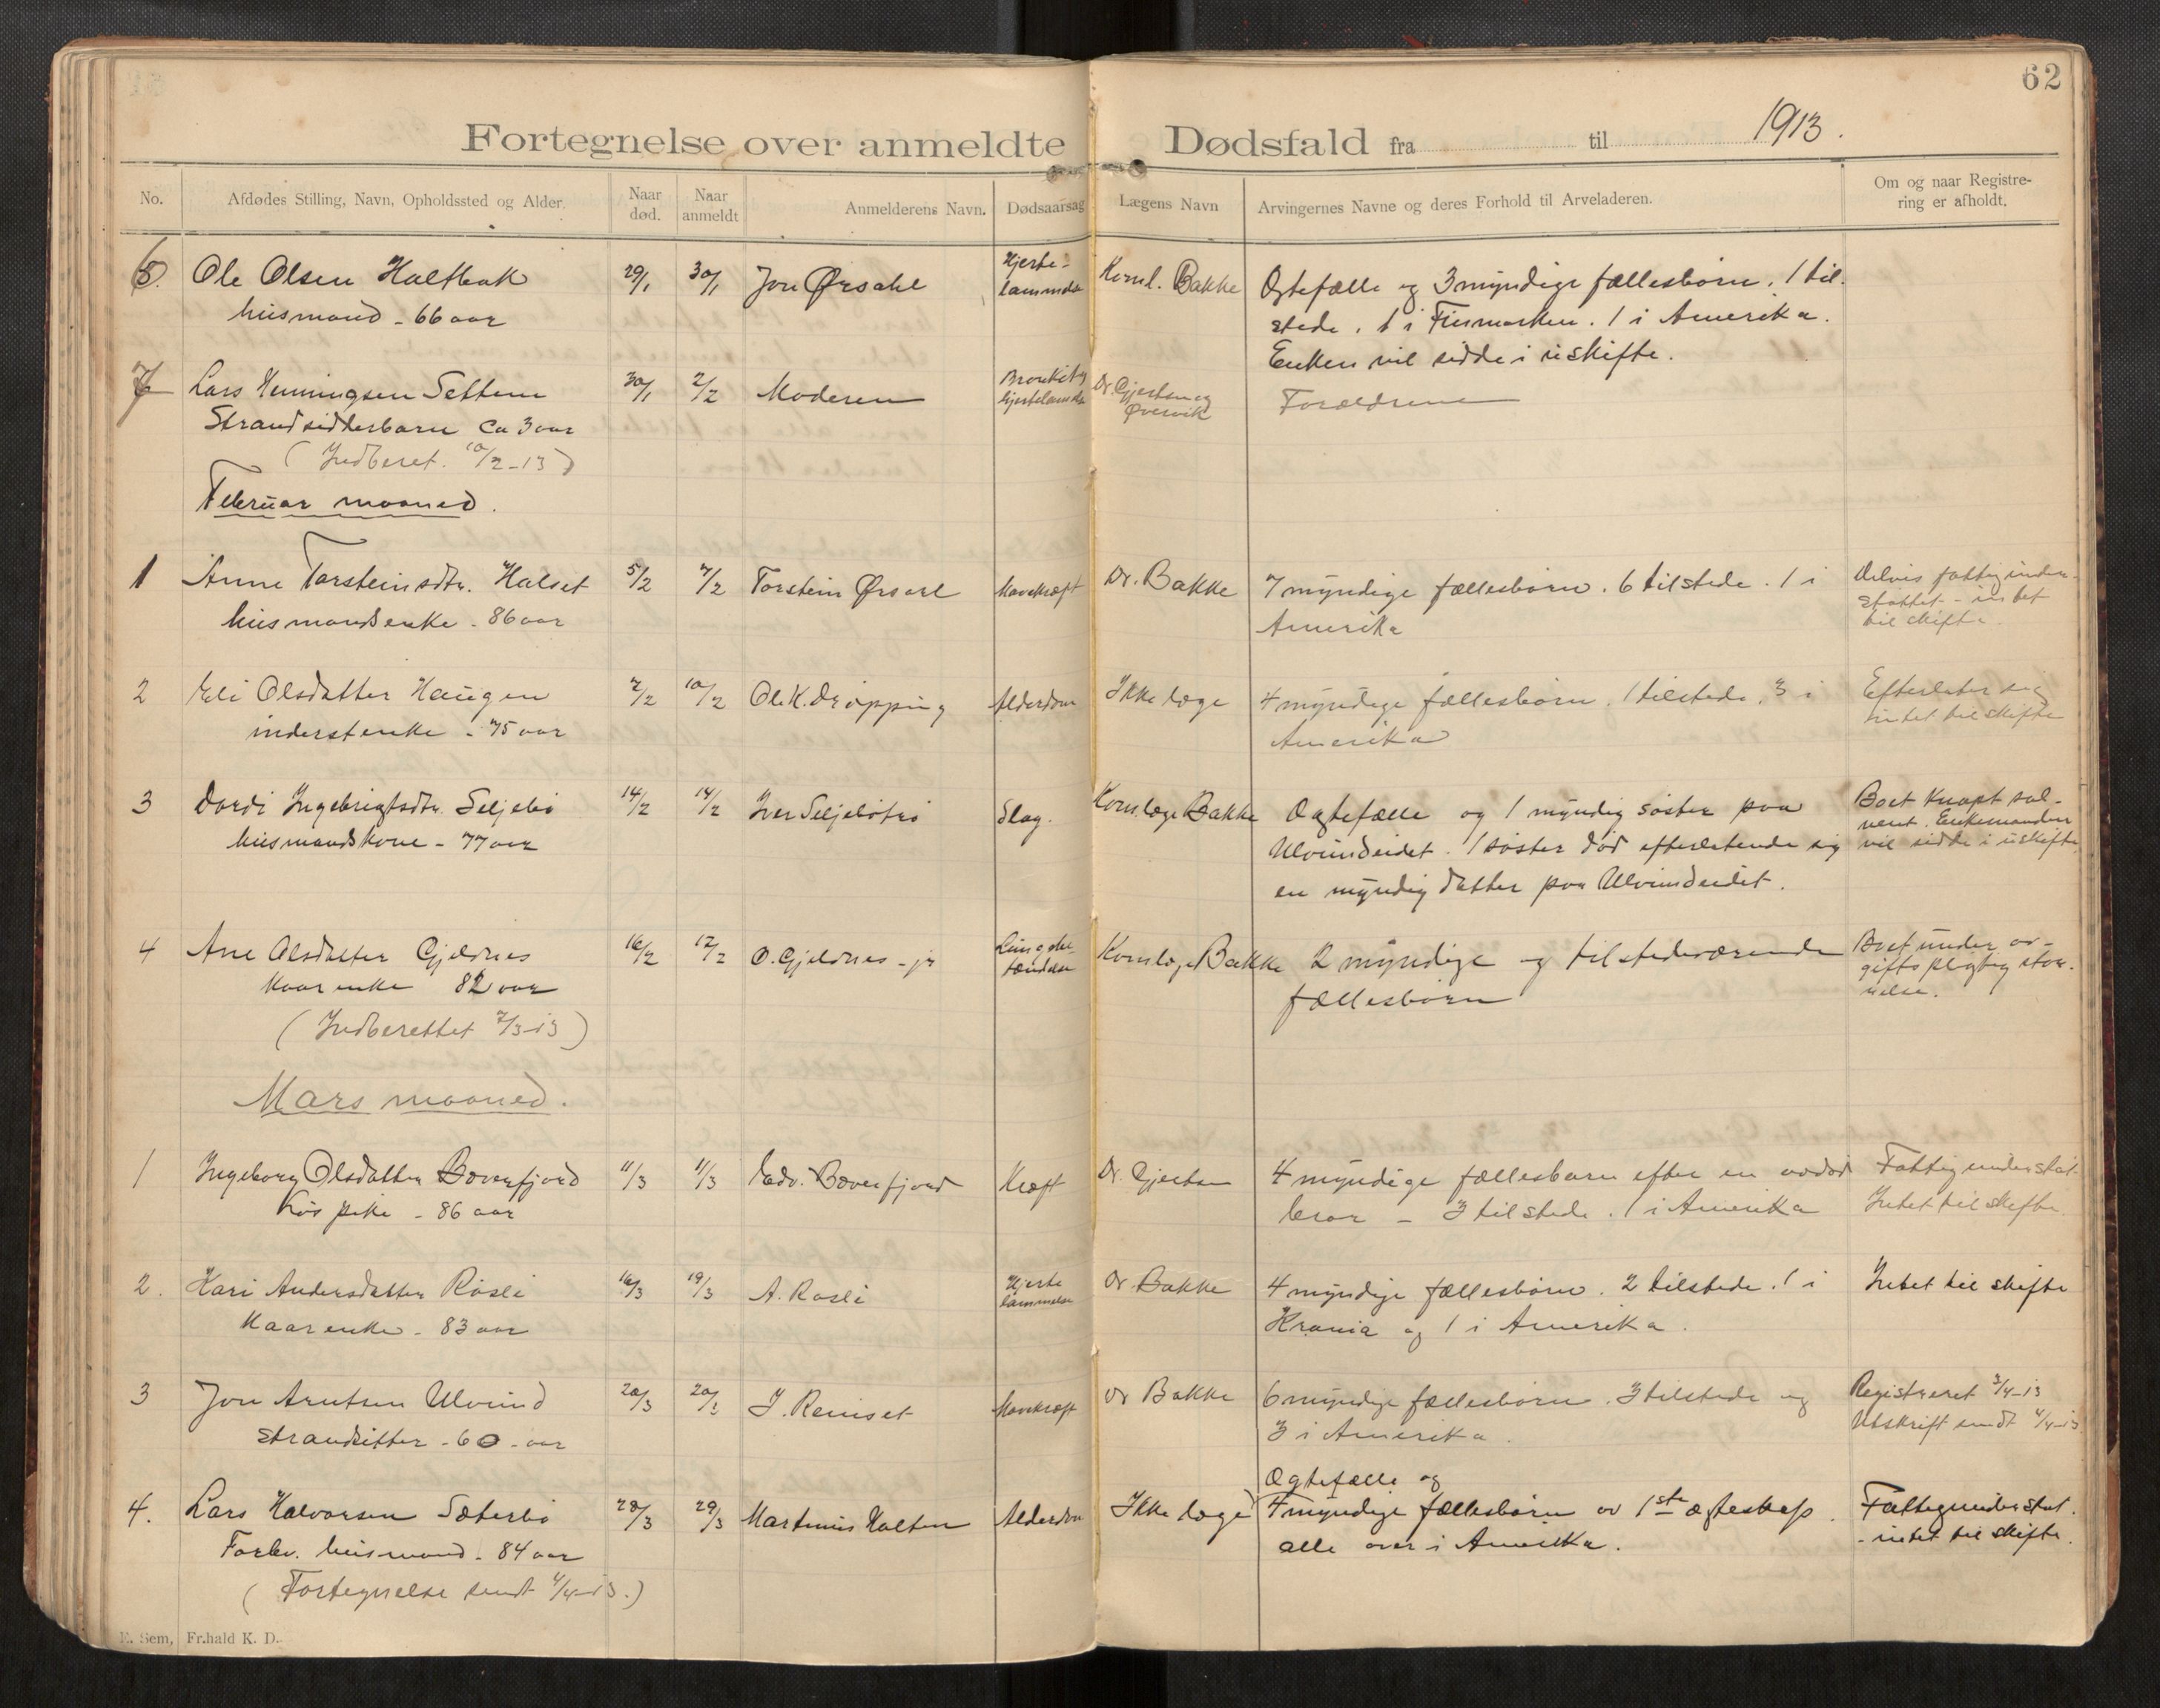 62
Fortegnelse over anmeldte Dødsfald fra til 1913.
No. Afdødes Stilling, Navn, Opholdssted og Alder. Naar død. Naar anmeldt Anmelderens Navn. Dødsaarsag Lægens Navn Arvingernes Navne og deres Forhold til Arveladeren. Om og naar Registrering er afholdt.
6. Ole Olsen 29/1 30/1 Jon Hjerte- Koml. Bakke Ægtefælle og 3 myndige fællesbørn. 1 til-
husmand - 66 aar lammelse stede. 1 i Finmarken. 1 i Amerika.
Enken vil sidde i uskifte.
7 Lars Henningsen Settem 30/1 2/2 Moderen Bronkit og Dr. Gjertsen og Forældrene
Strandsidderbarn ca 3 aar hjertelammelse Øvervik
(Indberet. 10/2-13)
Februar maaned.
1 Anne Torsteinsdtr. Halset 5/2 7/2 Torstein Mavekræft Dr. Bakke 7 myndige fællesbørn. 6 tilstede. 1 i Delvis fattigunder-
husmandsenke - 86 aar Amerika støttet - intet
til skifte
2 Eli Olsdatter Haugen 7/2 10/2 Ole K. Drøpping Alderdom Ikke læge 4 myndige fællesbørn. 1 tilstede. 3 i Efterlater sig
inderstenke - 75 aar Amerika intet til skifte
3 Dordi Ingebrigtsdtr. Seljebø 14/2 14/2 Iver Seljebøtrø Slag. Koms.læge Bakke Ægtefælle og 1 myndig søster paa Boet knapt sol-
husmandskone - 77 aar Ulvundeidet. 1 søster død efterlatende sig vent. Enkemanden
en myndig datter paa Ulvundeidet. vil sidde i uskifte
4 Ane Olsdatter Gjeldnes 16/2 17/2 O. Gjeldnes - jr Lungebe- Komslæge Bakke 2 myndige og tilstedeværende Boet under av-
Kaarenke 82 aar tændelse fællesbørn giftspligtig stør-
(Indberettet 7/3-13) relse.
Mars maaned.
1 Ingeborg Olsdatter Bøverfjord 11/3 11/3 Edv. Bøverfjord Kræft Dr. Gjertsen 4 myndige fællesbarn efter en avdød Fattigunderstøt.
Løs pike - 86 aar bror - 3 tilstede. 1 i Amerika Intet til skifte
2. Kari Andersdatter Røsli 16/3 19/3 A. Røsli Hjerte Dr. Bakke 4 myndige fællesbørn. 2 tilstede. 1 i Intet til skifte
Kaarenke - 83 aar lammelse Krania og 1 i Amerika.
3 Jon Arntsen Ulvund 20/3 20/3 J. Reniset Mavekræft Dr Bakke 6 myndige fællesbørn. 3 tilstede og Registreret 3/4-13
strandsitter - 60 - aar 3 i Amerika. Utskrift sendt 4/4-13
Ægtefælle og
4. Lars Halvorsen Sæterbø 28/3 29/3 Martinus Holten Alderdom Ikke læge 4 myndige fællesbørn av 1ste ægteskap. Fattigunderstøt.
Forhv. husmand - 84 aar alle over i Amerika. - intet til skifte.
(Fortegnelse sendt 4/4-13.)
E. Sem, Fr.hald K. D.